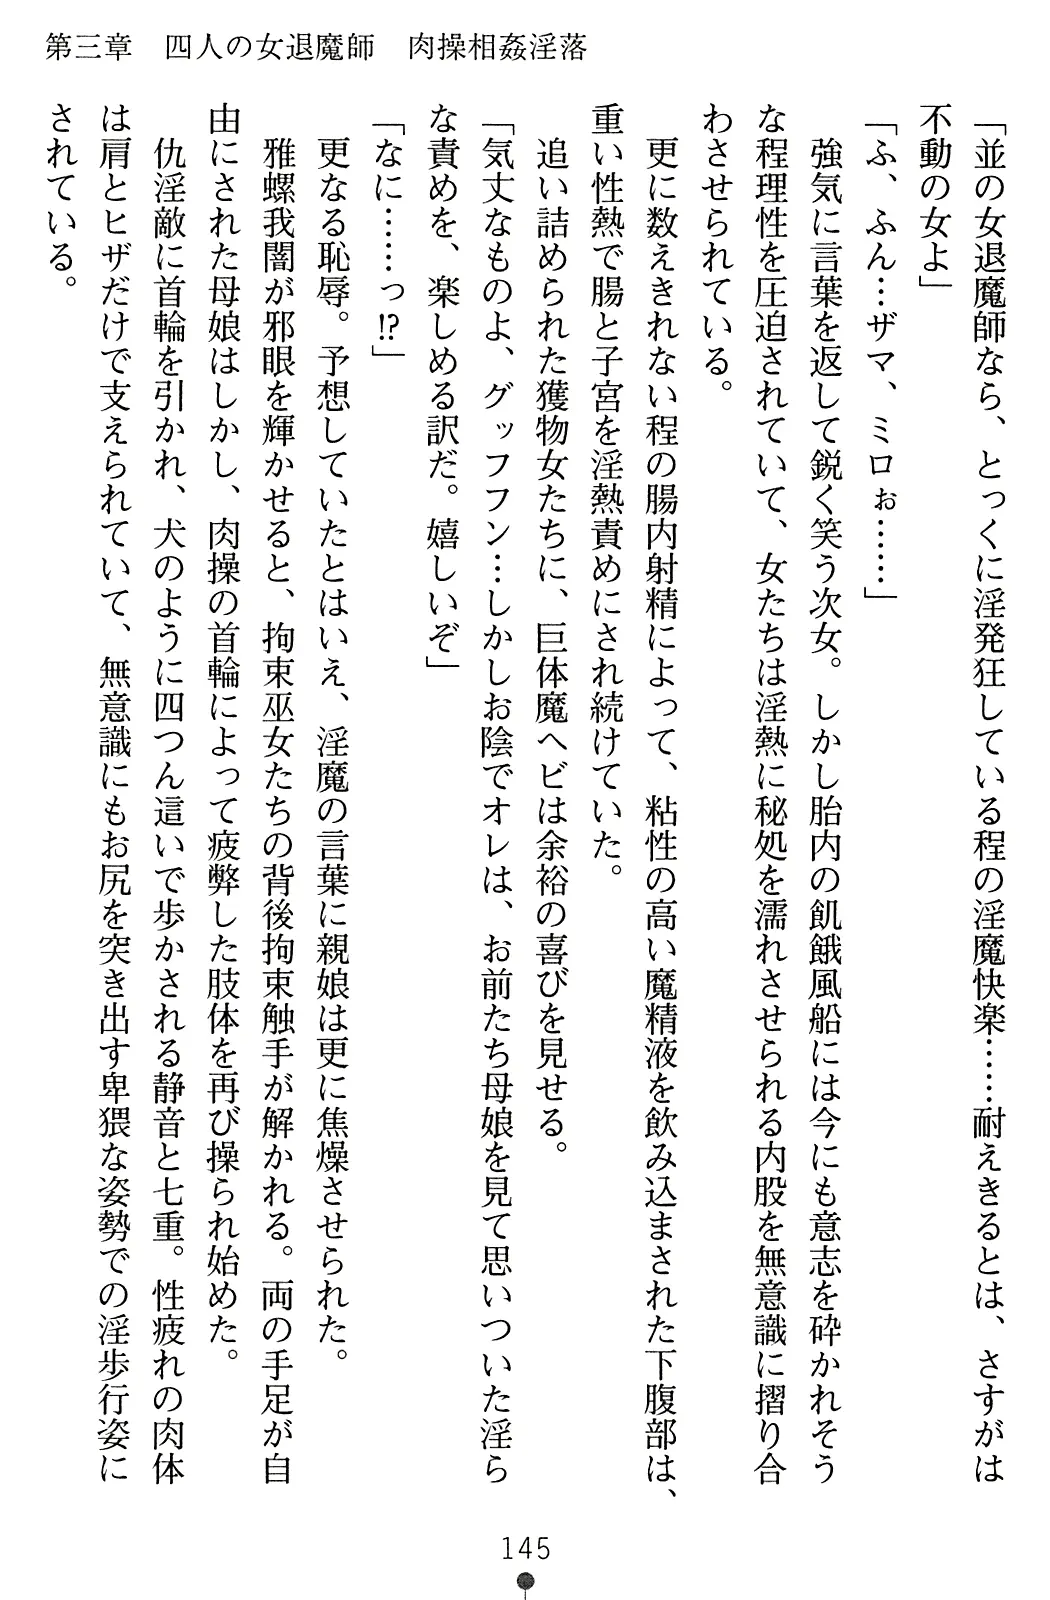 第三章　四人の女退魔師　肉操相姦淫落
「並の女退魔師なら、とっくに淫発狂している程の淫魔快楽……耐えきるとは、さすがは
不動の女よ」
「ふ、ふん…ザマ、ミロぉ……」
　強気に言葉を返して鋭く笑う次女。しかし胎内の飢餓風船には今にも意志を砕かれそう
な程理性を圧迫されていて、女たちは淫熱に秘処を濡れさせられる内股を無意識に摺り合
わさせられている。
　更に数えきれない程の腸内射精によって、粘性の高い魔精液を飲み込まされた下腹部は、
重い性熱で腸と子宮を淫熱責めにされ続けていた。
　追い詰められた獲物女たちに、巨体魔ヘビは余裕の喜びを見せる。
「気丈なものよ、グッフフン…しかしお陰でオレは、お前たち母娘を見て思いついた淫ら
な責めを、楽しめる訳だ。嬉しいぞ」
「なに……っ!?」
　更なる恥辱。予想していたとはいえ、淫魔の言葉に親娘は更に焦燥させられた。
　雅螺我闇が邪眼を輝かせると、拘束巫女たちの背後拘束触手が解かれる。両の手足が自
由にされた母娘はしかし、肉操の首輪によって疲弊した肢体を再び操られ始めた。
　仇淫敵に首輪を引かれ、犬のように四つん這いで歩かされる静音と七重。性疲れの肉体
は肩とヒザだけで支えられていて、無意識にもお尻を突き出す卑猥な姿勢での淫歩行姿に
されている。
145